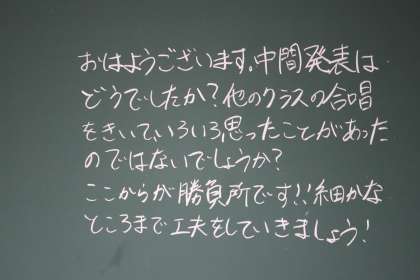 おはようございます。中間発表は
どうでしたか？他のクラスの合唱
をきいていろいろ思ったことがあった
のではないでしょうか？
ここからが勝負所です!!細かな
ところまで工夫をしていきましょう！